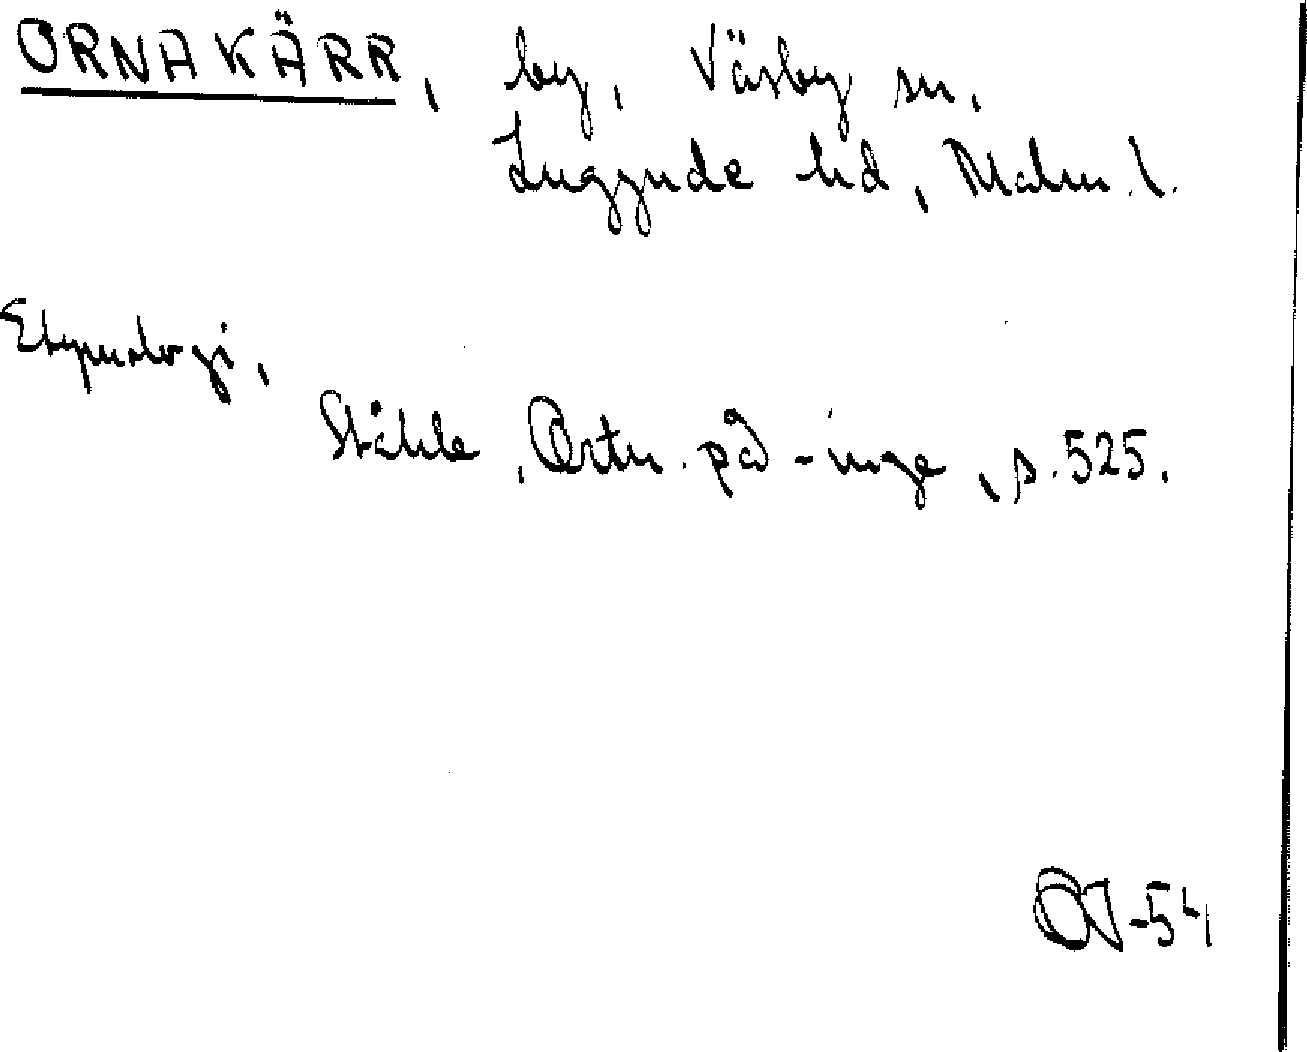 ORNAKÄRR, by, Väsby sn,
Luggude hd, Malm. l.
Etymologi,
Ståhle, Ortn. på -inge, s. 525.
OJ-54